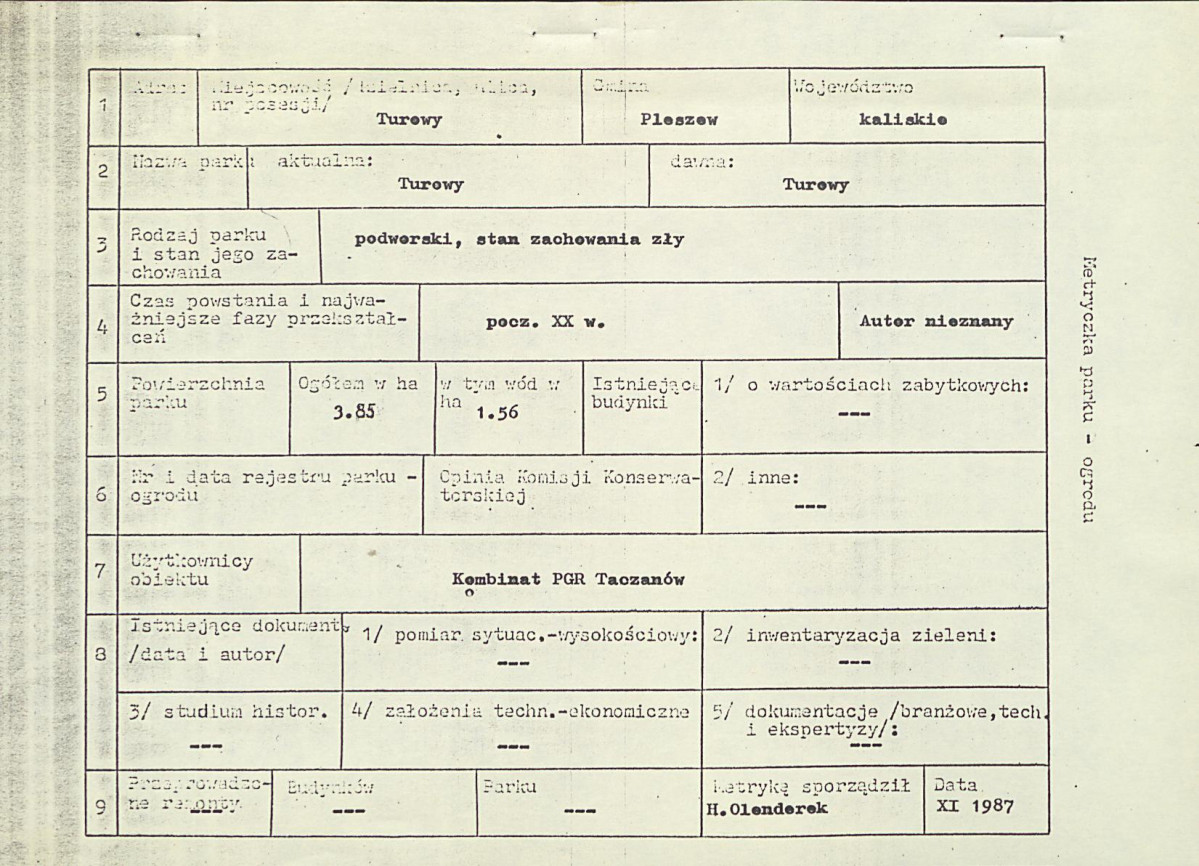 1
Adres
Miejscowość /dzielnica, ulica,
nr posesji/
Turowy
Gmina
Pleszew
Województwo
kaliskie
2
Nazwa parku
aktualna:
Turowy
dawna:
Turowy
3
Rodzaj parku
i stan jego za-
chowania
podworski, stan zachowania zły
4
Czas powstania i najwa-
żniejsze fazy przekształ-
ceń
pocz. XX w.
Autor nieznany
5
Powierzchnia
parku
Ogółem w ha
3.85
w tym wód w
ha
1.56
Istniejące
budynki
1/ o wartościach zabytkowych:
---
6
Nr i data rejestru parku -
ogrodu
Opinia Komisji Konserwa-
torskiej
2/ inne:
---
7
Użytkownicy
obiektu
Kombinat PGR Taczanów
8
Istniejące dokumenty
/data i autor/
1/ pomiar sytuac.-wysokościowy:
---
2/ inwentaryzacja zieleni:
---
3/ studium histor.
---
4/ założenia techn.-ekonomiczne
---
5/ dokumentacje /branżowe,tech.
i ekspertyzy/:
---
9
Przeprowadzo-
ne remonty.
---
Budynków
---
Parku
---
Metrykę sporządził
H.Olenderek
Data
XI 1987
Metryczka parku - ogrodu